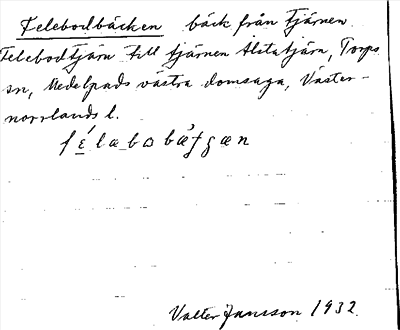 Felebodbäcken bäck från tjärnen
Felebodtjärn till tjärnen Alstatjärn, Torps
sn, Medelpads västra domsaga, Väster-
norrlands l.
Valter Jansson 1932.